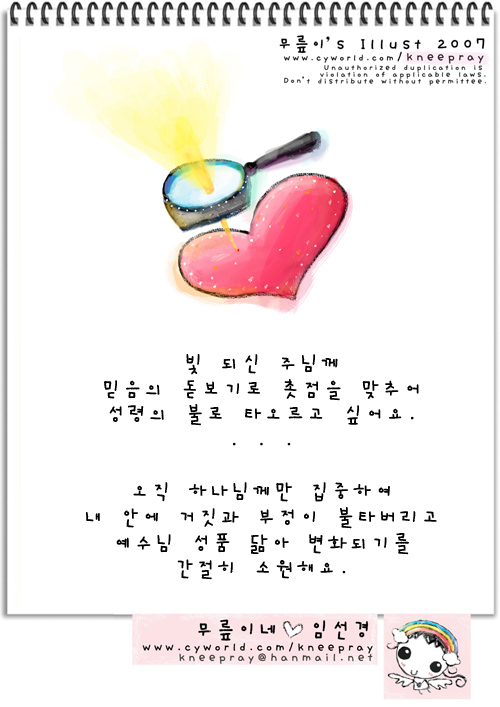 무릎이's Illust 2007
www.cyworld.com/kneepray
Unauthorized duplication is
violation of applicable laws.
Don't distribute without permittee.
빛 되신 주님께
믿음의 돋보기로 촛점을 맞추어
성령의 불로 타오르고 싶어요.
. . .
오직 하나님께만 집중하여
내 안에 거짓과 부정이 불타버리고
예수님 성품 닮아 변화되기를
간절히 소원해요.
무릎이네♡임선경
www.cyworld.com/kneepray
kneepray@hanmail.net